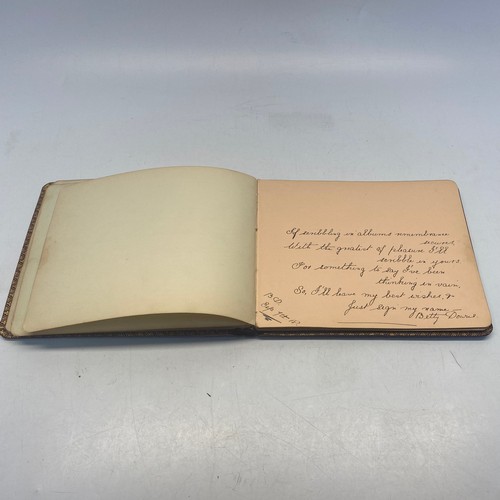 If scribbling in albums remembrance
secures,
With the greatest of pleasure I'll
scribble in yours.
For something to say I've been
thinking in vain,
So, I'll leave my best wishes, &
Just sign my name
Betty
B.D.